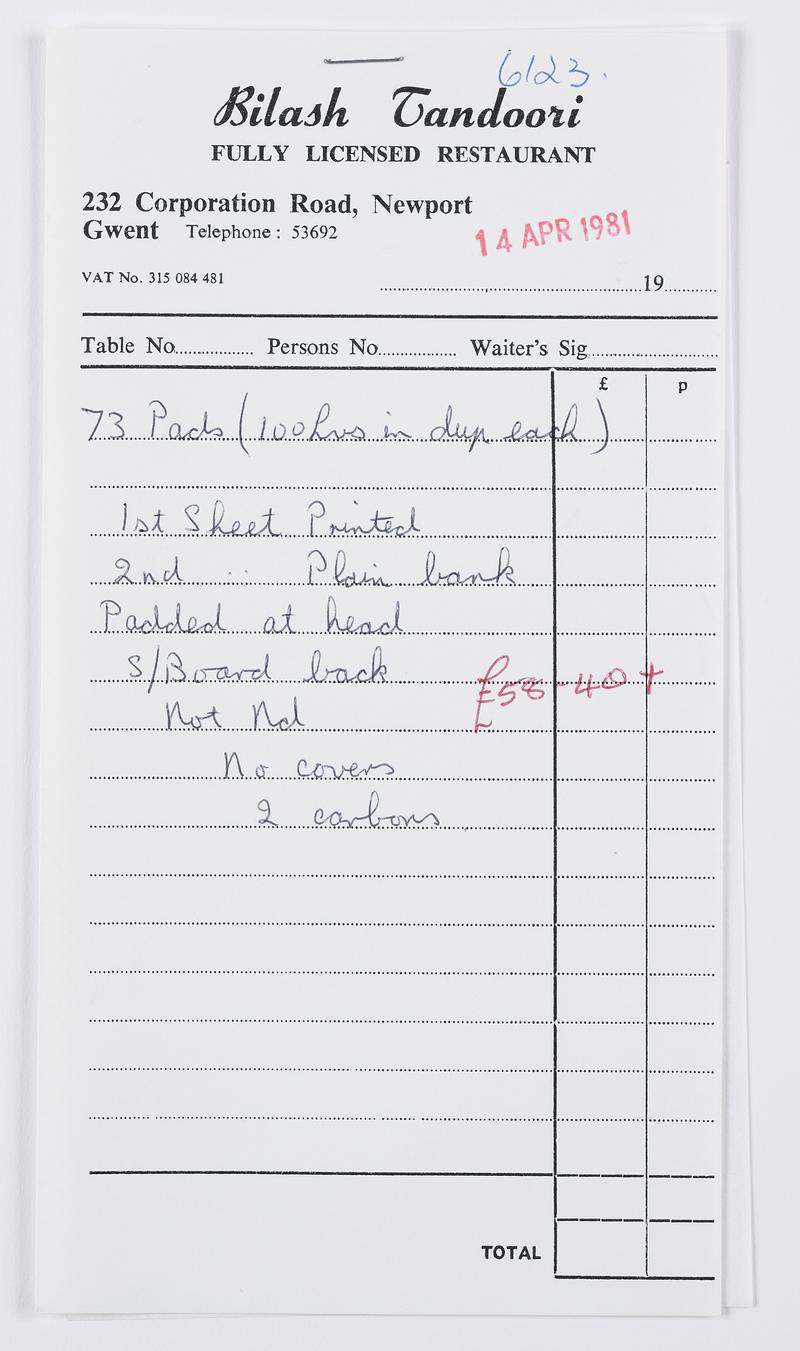 6123.
Bilash Tandoori
FULLY LICENSED RESTAURANT
232 Corporation Road, Newport
Gwent Telephone: 53692
14 APR 1981
VAT No. 315 084 481
19
Table No. Persons No. Waiter's Sig.
£ p
73 Pads (100 lvs in dup each)
1st Sheet Printed
2nd " Plain bank
Padded at head
S/Board back
£58-40 +
Not Nd
No covers
2 carbons
TOTAL